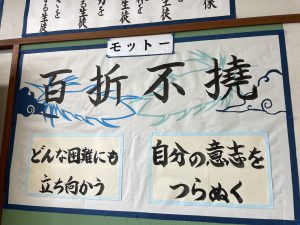 モットー
百折不撓
どんな困難にも
立ち向かう
自分の意志を
つらぬく